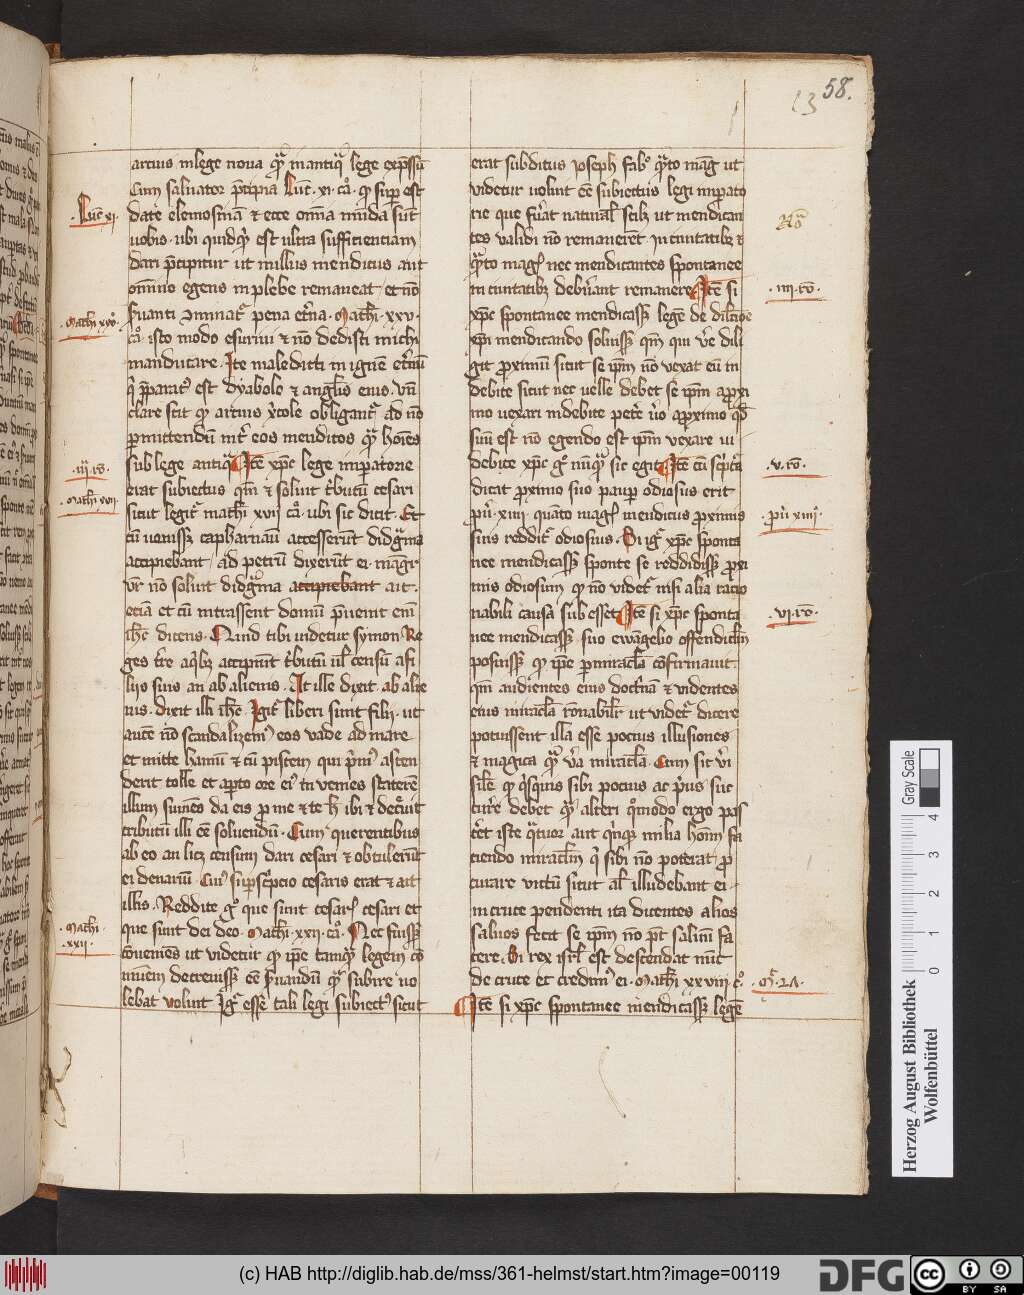 58.
13
arcius in lege nova qͣ in antiqͣ lege exp̄ssū
Cum saluator p̄cipiat Luc̄ · xi · cͦ · qͥ suꝑest
date elemosinā ⁊ ecce om̄ia mūda sūt
uobis · ubi quidqͥd est ultra sufficienciam
dari p̄cipitur ut nullus mendicus aut
omnino egens in plebe remaneat et nō
s̄uanti ⁊minat᷑ pena et̄na · Math̄ · xxv ·
cͦ · isto modo esuriui ⁊ nō dedisti michi
manducare · Ite maledicti in ignē et̄nū
qͥ p̄parat᷒ est dyabolo ⁊ angl̄is eius · Vn̄
clare scit qͥ arcius xp̄icole obligant᷑ ad nō
ꝑmittendū int̄ eos mendicos qͣ hoīes
sub lege antiqͣ Itē xp̄c lege imꝑatorie
erat subiectus qm̄ ⁊ soluit t̄butū cesari
sicut legit᷑ math̄ xvii cͦ · ubi sic dicit · Et
cū uenissꝫ capharnaū accesserūt didgͣma
accipiebant / ad petrū dixerūt ei · magr̄
vr̄ nō soluit didgͣma accipiebant ait ·
eciā et cū intrassent domū p̄uenit eū
ih̄c dicens · Quid tibi uidetur symon Re
ges t̄re a qͥbꝫ accipiūt t̄butū ul̄ censū a fi
liis suis an ab alienis · At ille dixit · ab alie
nis · dixit illi ih̄c · Igit᷑ liberi sunt filij · ut
autē nō scandalizem᷒ eos vade ad mare
et mitte hamū ⁊ cū piscem qui p̄m᷒ ascen
derit tolle et aꝑto ore ei᷒ inuenies staterē
illum sumēs da eis ꝓ me ⁊ te
tributū illi eē soluendū · Cum querentibus
ab eo an licꝫ censum dari cesari ⁊ obtulerūt
ei denariū · Cui᷒ suꝑscp̄cio cesaris erat ⁊ ait
illis · Reddite gͦ que sunt cesar̄ cesari et
que sunt dei deo · Math̄ · xxii · cͦ · Nec fuissꝫ
cōueniēs ut videtur qͥ ip̄e tamqͣ legem cō
munem decreuissꝫ eē s̄uandū qͣ subire no
lebat voluit Igͥ esse tali legi subiect᷒ sicut
erat subditus Joseph fabͦ qͣto maḡ ut
videtur uoluit eē subiectus legi imꝑato
rie que fūat natural̄ scilꝫ ut mendican
tes validi nō remanerēt in ciuitatibꝫ ⁊
qͣto maḡ nec mendicantes spontanee
in ciuitatibꝫ debūant remanere Itē si
xp̄c spontanee mendicassꝫ legē de dilcōe
xp̄i mendicando soluissꝫ qm̄ qui v̄e dili
git proximū sicut se ip̄m nō vexat eū in
debite sicut nec uelle debet se ip̄m a proxi
mo vexari indebite pet̄e v̄o a proximo qͦd
suū est nō egendo est ip̄m vexare in
debite xp̄c gͦ nūqͣ sic egit Itē cū sc̄ptͣa
dicat proximo suo pauꝑ odiosus erit
ꝓu̇ · xiiii · quāto maḡ mendicus proximis
suis reddit᷑ odiosius · Si igͥ xp̄c sponta
nee mendicassꝫ sponte se reddidissꝫ proxi
mis odiosum qͥ nō videt᷑ nisi alia racio
nabili causa subesset Itē si xp̄c sponta
nee mendicassꝫ suo ewāgelio offendiclm̄
posuissꝫ qͥ ip̄e ꝑ miracl̄a cōfirmauit
qm̄ audientes eius doct̄nā ⁊ videntes
eius miracl̄a rōnabilit᷑ ut videt᷑ dicere
potuissent illa esse pocius illusiones
⁊ magica qͣ v̄a miracl̄a · Cum sit v̄i
sil̄e qͥ qͥsqͥuis sibi pocius ac p̄us suc
curr̄e debet qͣ alteri qͦmodo ergo pas
ceret iste qͣtuor aut qͥnqꝫ milia hom̄ fa
ciendo miraclm̄ qͥ sibi nō poterat ꝓ
curare victū sicut al̄ illudebant ei ·
in cruce pendenti ita dicentes alios
saluos fecit se ip̄m nō pōt saluū fa
cere · Si rex isrl̄ est descendat nūc
de cruce et credim᷒ ei · Math̄ xxviii cͦ
Itē si xp̄c spontanee mendicassꝫ legē
· Luc̄ xi ·
· Math̄ xxvͦ ·
· iii · rō ·
· Math̄ xvii ·
· Math̄ ·
· xxii ·
· iiii · rō ·
· v · rō ·
· ꝓu̇ xiiii ·
· vi · rō ·
Gray Scale
0 1 2 3 4
Herzog August Bibliothek
Wolfenbüttel
(c) HAB http://diglib.hab.de/mss/361-helmst/start.htm?image=00119
DFG
cc BY SA